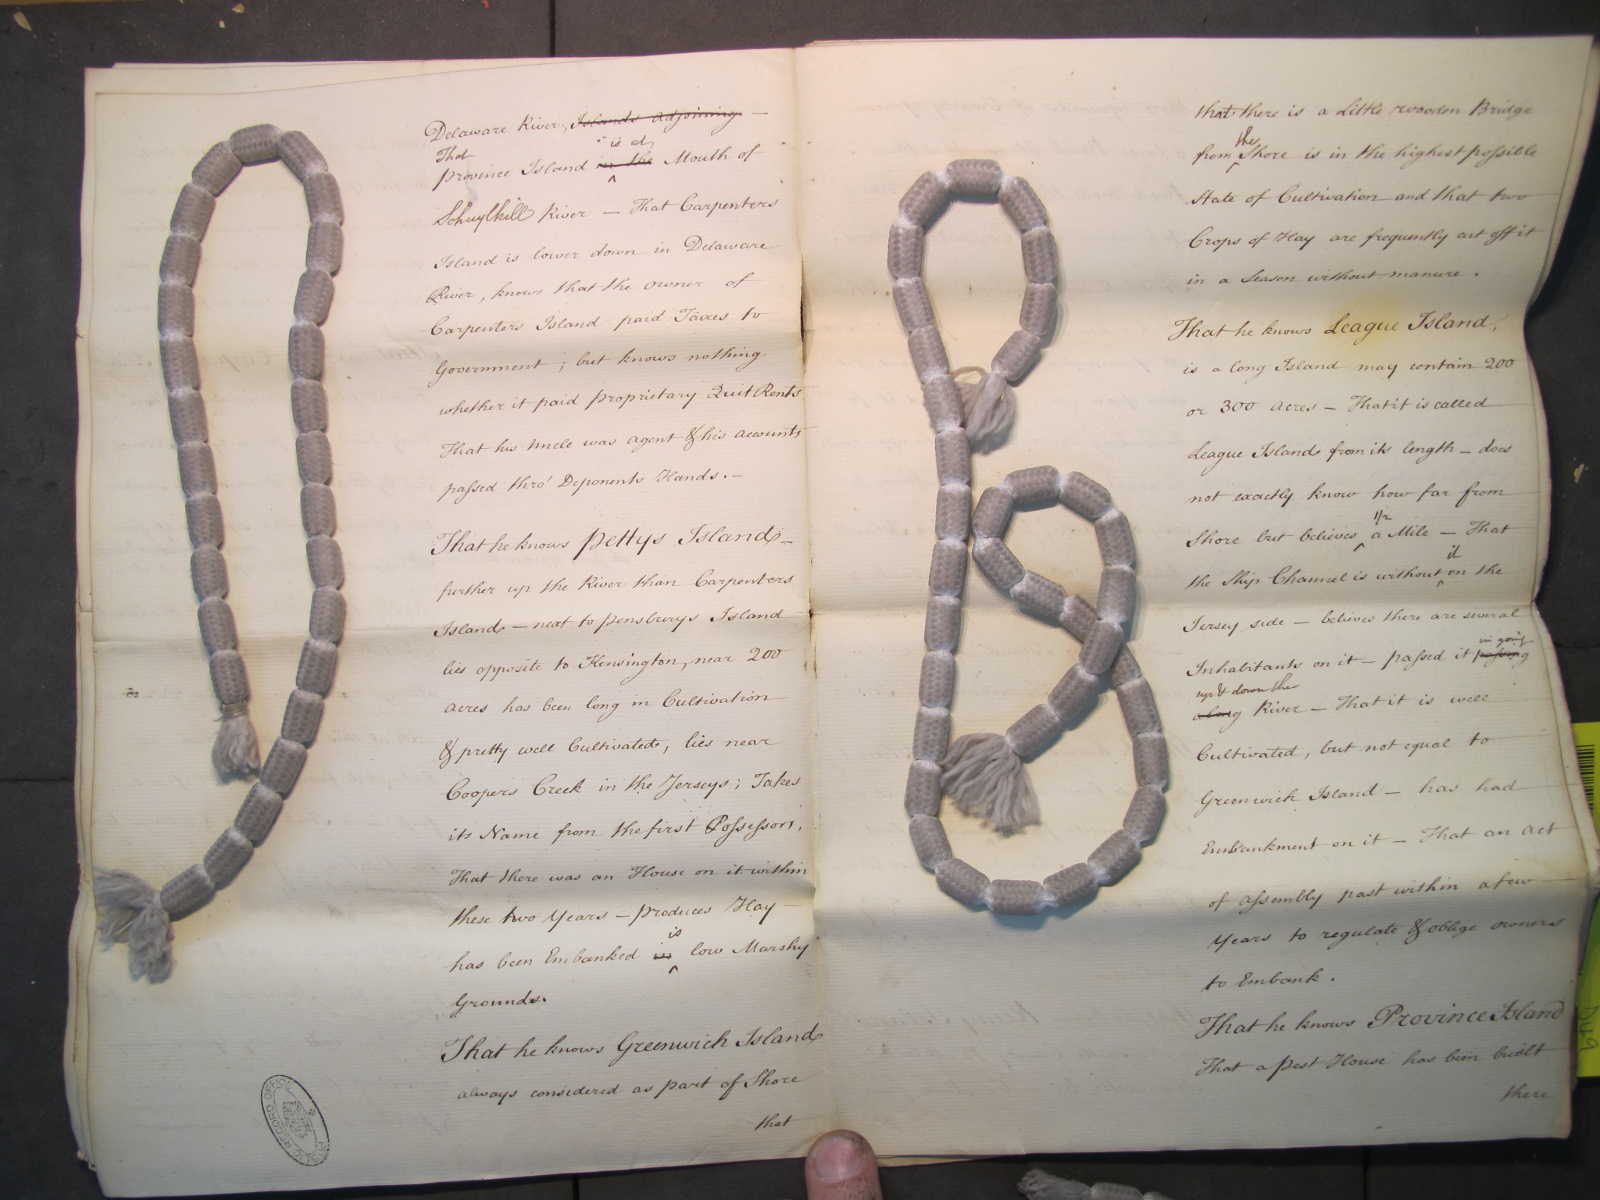 Delaware River, Islands adjoining —
That                is at
province Island in the Mouth of
Schuylkill River — That Carpenters
Island is lower down in Delaware
River, knows that the owner of
Carpenters Island paid Taxes to
Government; but knows nothing
whether it paid proprietary Quit Rents
That his Uncle was agent & his accounts
passed thro' Deponents Hands. —
That he knows pettys Island —
further up the River than Carpenters
Island — next to pensburys Island
lies opposite to Kensington, near 200
acres has been long in Cultivation
& pretty well Cultivated, lies near
Coopers Creek in the Jerseys; Takes
its Name from the first Possessors,
That there was an House on it within
these two years — produces Hay —
is
has been Embanked in low Marshy
Grounds.
That he knows Greenwich Island
always considered as part of Shore
that
RECORD OFFICE
that there is a little wooden Bridge
the
from Shore is in the highest possible
State of Cultivation and that two
Crops of Hay are frequently cut off it
in a Season without manure.
That he knows League Island,
is a long Island may contain 200
or 300 acres — That it is called
League Island from its length — does
not exactly know how far from
1/2
Shore but believes a Mile — That
it
the Ship Channel is without on the
Jersey side — believes there are several
in going
Inhabitants on it — passed it passing
up & down the
along River — That it is well
Cultivated, but not equal to
Greenwich Island — has had
Embankment on it — That an act
of assembly past within a few
years to regulate & oblige owners
to Embank.
That he knows Province Island
That a pest House has been built
there